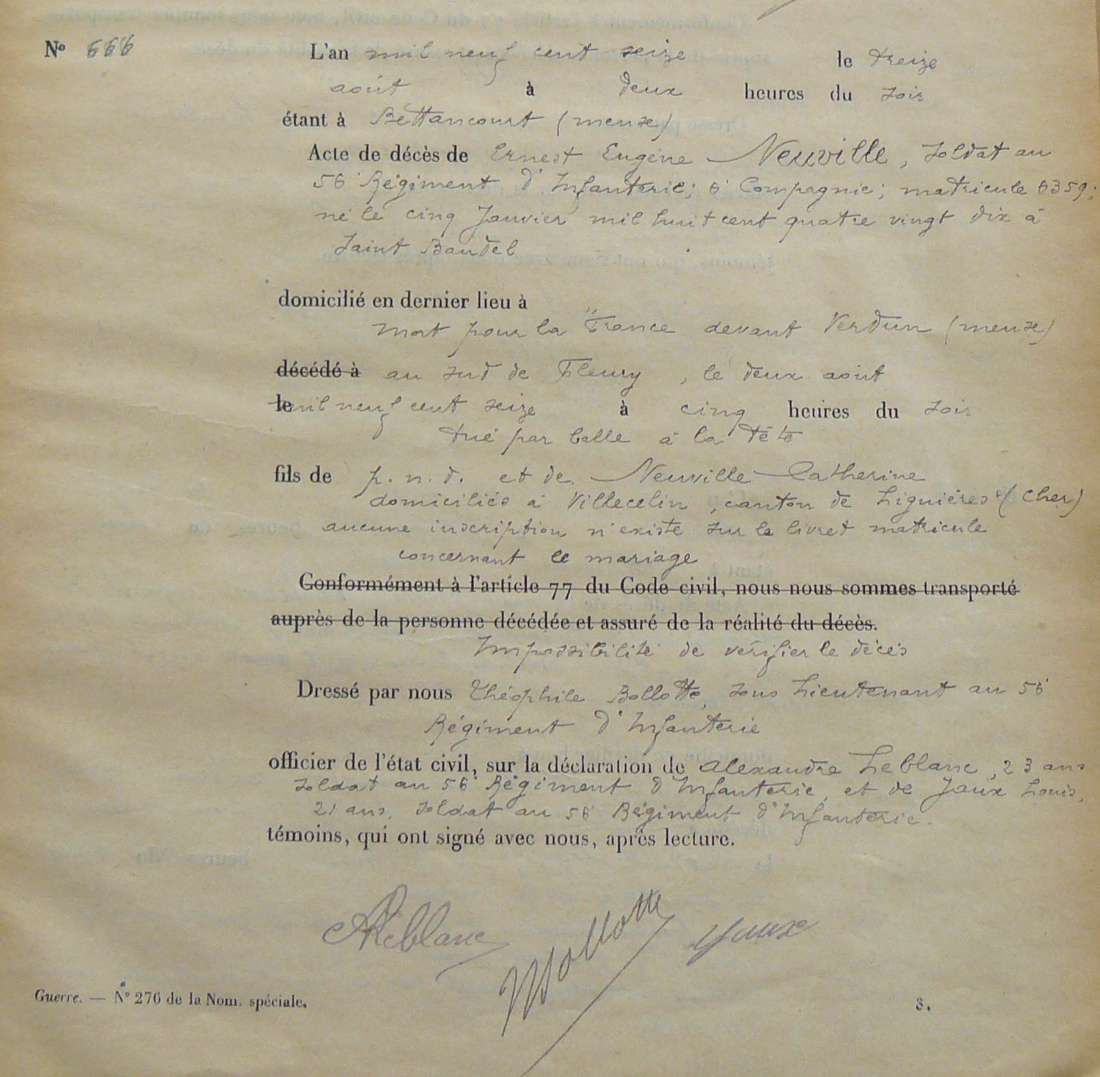 N° 666
L'an mil neuf cent seize le treize
août à deux heures du soir
étant à Bettancourt (meuse)
Acte de décès de Ernest Eugène Neuville, soldat au
56ᵉ Régiment d'Infanterie; 6ᵉ Compagnie; matricule 6359;
né le cinq Janvier mil huit cent quatre vingt dix à
Saint Baudel
domicilié en dernier lieu à
mort pour la France devant Verdun (meuse)
décédé à au sud de Fleury, le deux août
le mil neuf cent seize à cinq heures du soir
tué par balle à la tête
fils de p. n. d. et de Neuville Catherine
domiciliés à Villecelin, canton de Lignières (Cher)
aucune inscription n'existe sur le livret matricule
concernant le mariage
Conformément à l'article 77 du Code civil, nous nous sommes transporté
auprès de la personne décédée et assuré de la réalité du décès.
Impossibilité de vérifier le décès
Dressé par nous Théophile Bollotte, sous Lieutenant au 56ᵉ
Régiment d'Infanterie
officier de l'état civil, sur la déclaration de Alexandre Leblanc, 23 ans
soldat au 56ᵉ Régiment d'Infanterie, et de Jaux Louis,
21 ans, soldat au 56ᵉ Régiment d'Infanterie.
témoins, qui ont signé avec nous, après lecture.
ALeblanc Bollotte Jaux
Guerre. — N° 276 de la Nom. spéciale. 3.